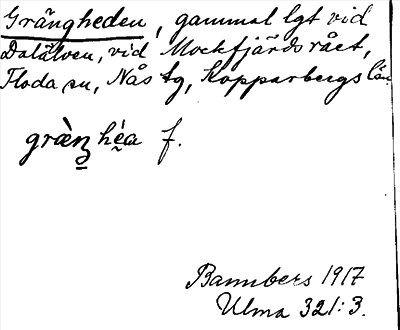 Grängheden, gammal lgt vid
Dalälven, vid Mockfjärds rået,
Floda sn, Nås tg, Kopparbergs län.
græ̀nʒ héa f.
Bannbers 1917
Ulma 321:3.